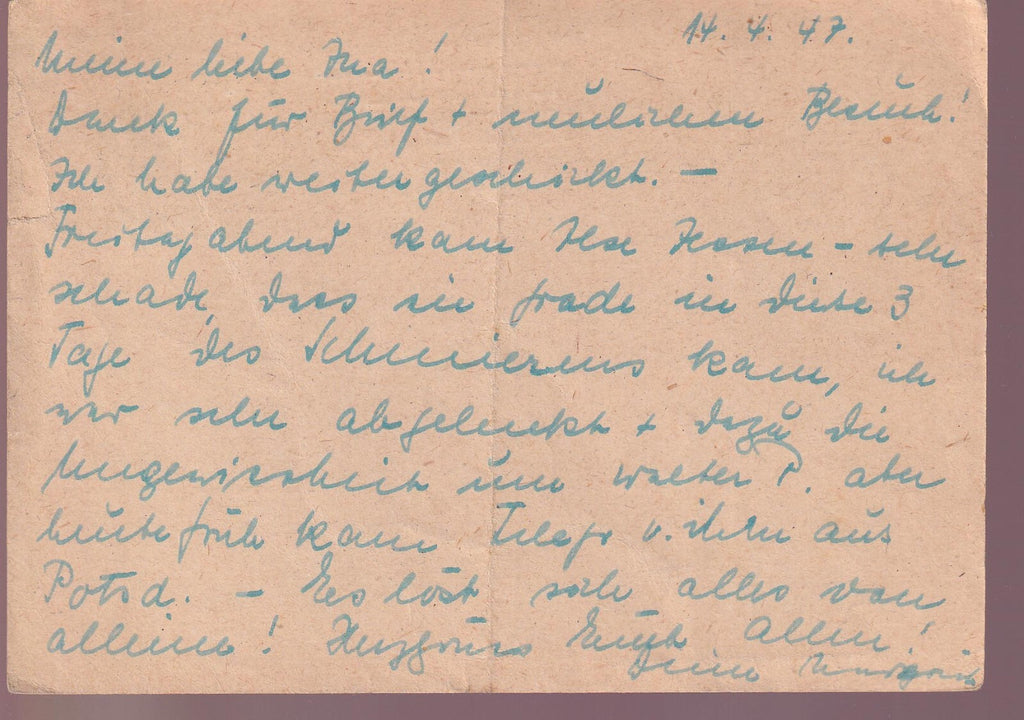 14. 4. 47.
Meine liebe Ina!
Dank für Brief + neulichen Besuch!
Ich habe weitergeschickt. —
Freitag abend kam Ilse Jessen – sehr
schade, dass sie grade in diese 3
Tage des kam, ich
war sehr abgelenkt + dazu die
Ungewissheit um Walter P. aber
heute früh kam Telegr v. ihm aus
Potsd. – Es löst sich alles von
alleine! Herzgruss Euch allen!
Deine